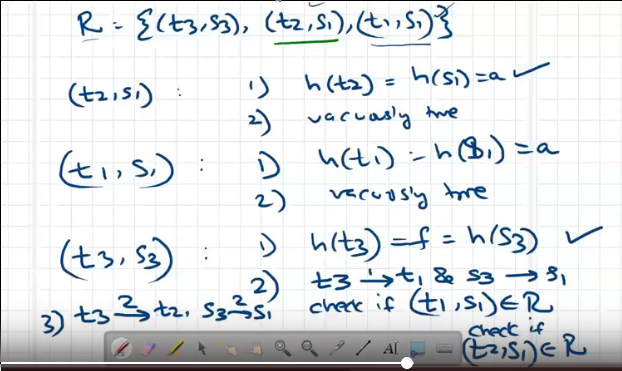 R = {(t3,s3), (t2,s1),(t1,s1)}
(t2,s1) : 1) h(t2) = h(s1) = a ✓
2) vacuously true
(t1,s1) : 1) h(t1) = h(s1) = a
2) vacuously true
(t3,s3) : 1) h(t3) = f = h(s3) ✓
2) t3 →1 t1 & s3 → s1
check if (t1,s1) ∈ R
3) t3 →2 t2, s3 →2 s1
check if
(t2,s1) ∈ R
AI